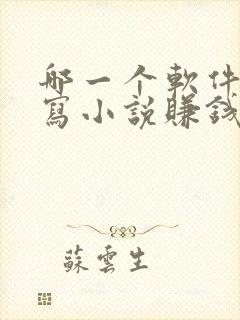 哪一个軟件
寫小説賺錢
蘇雲生